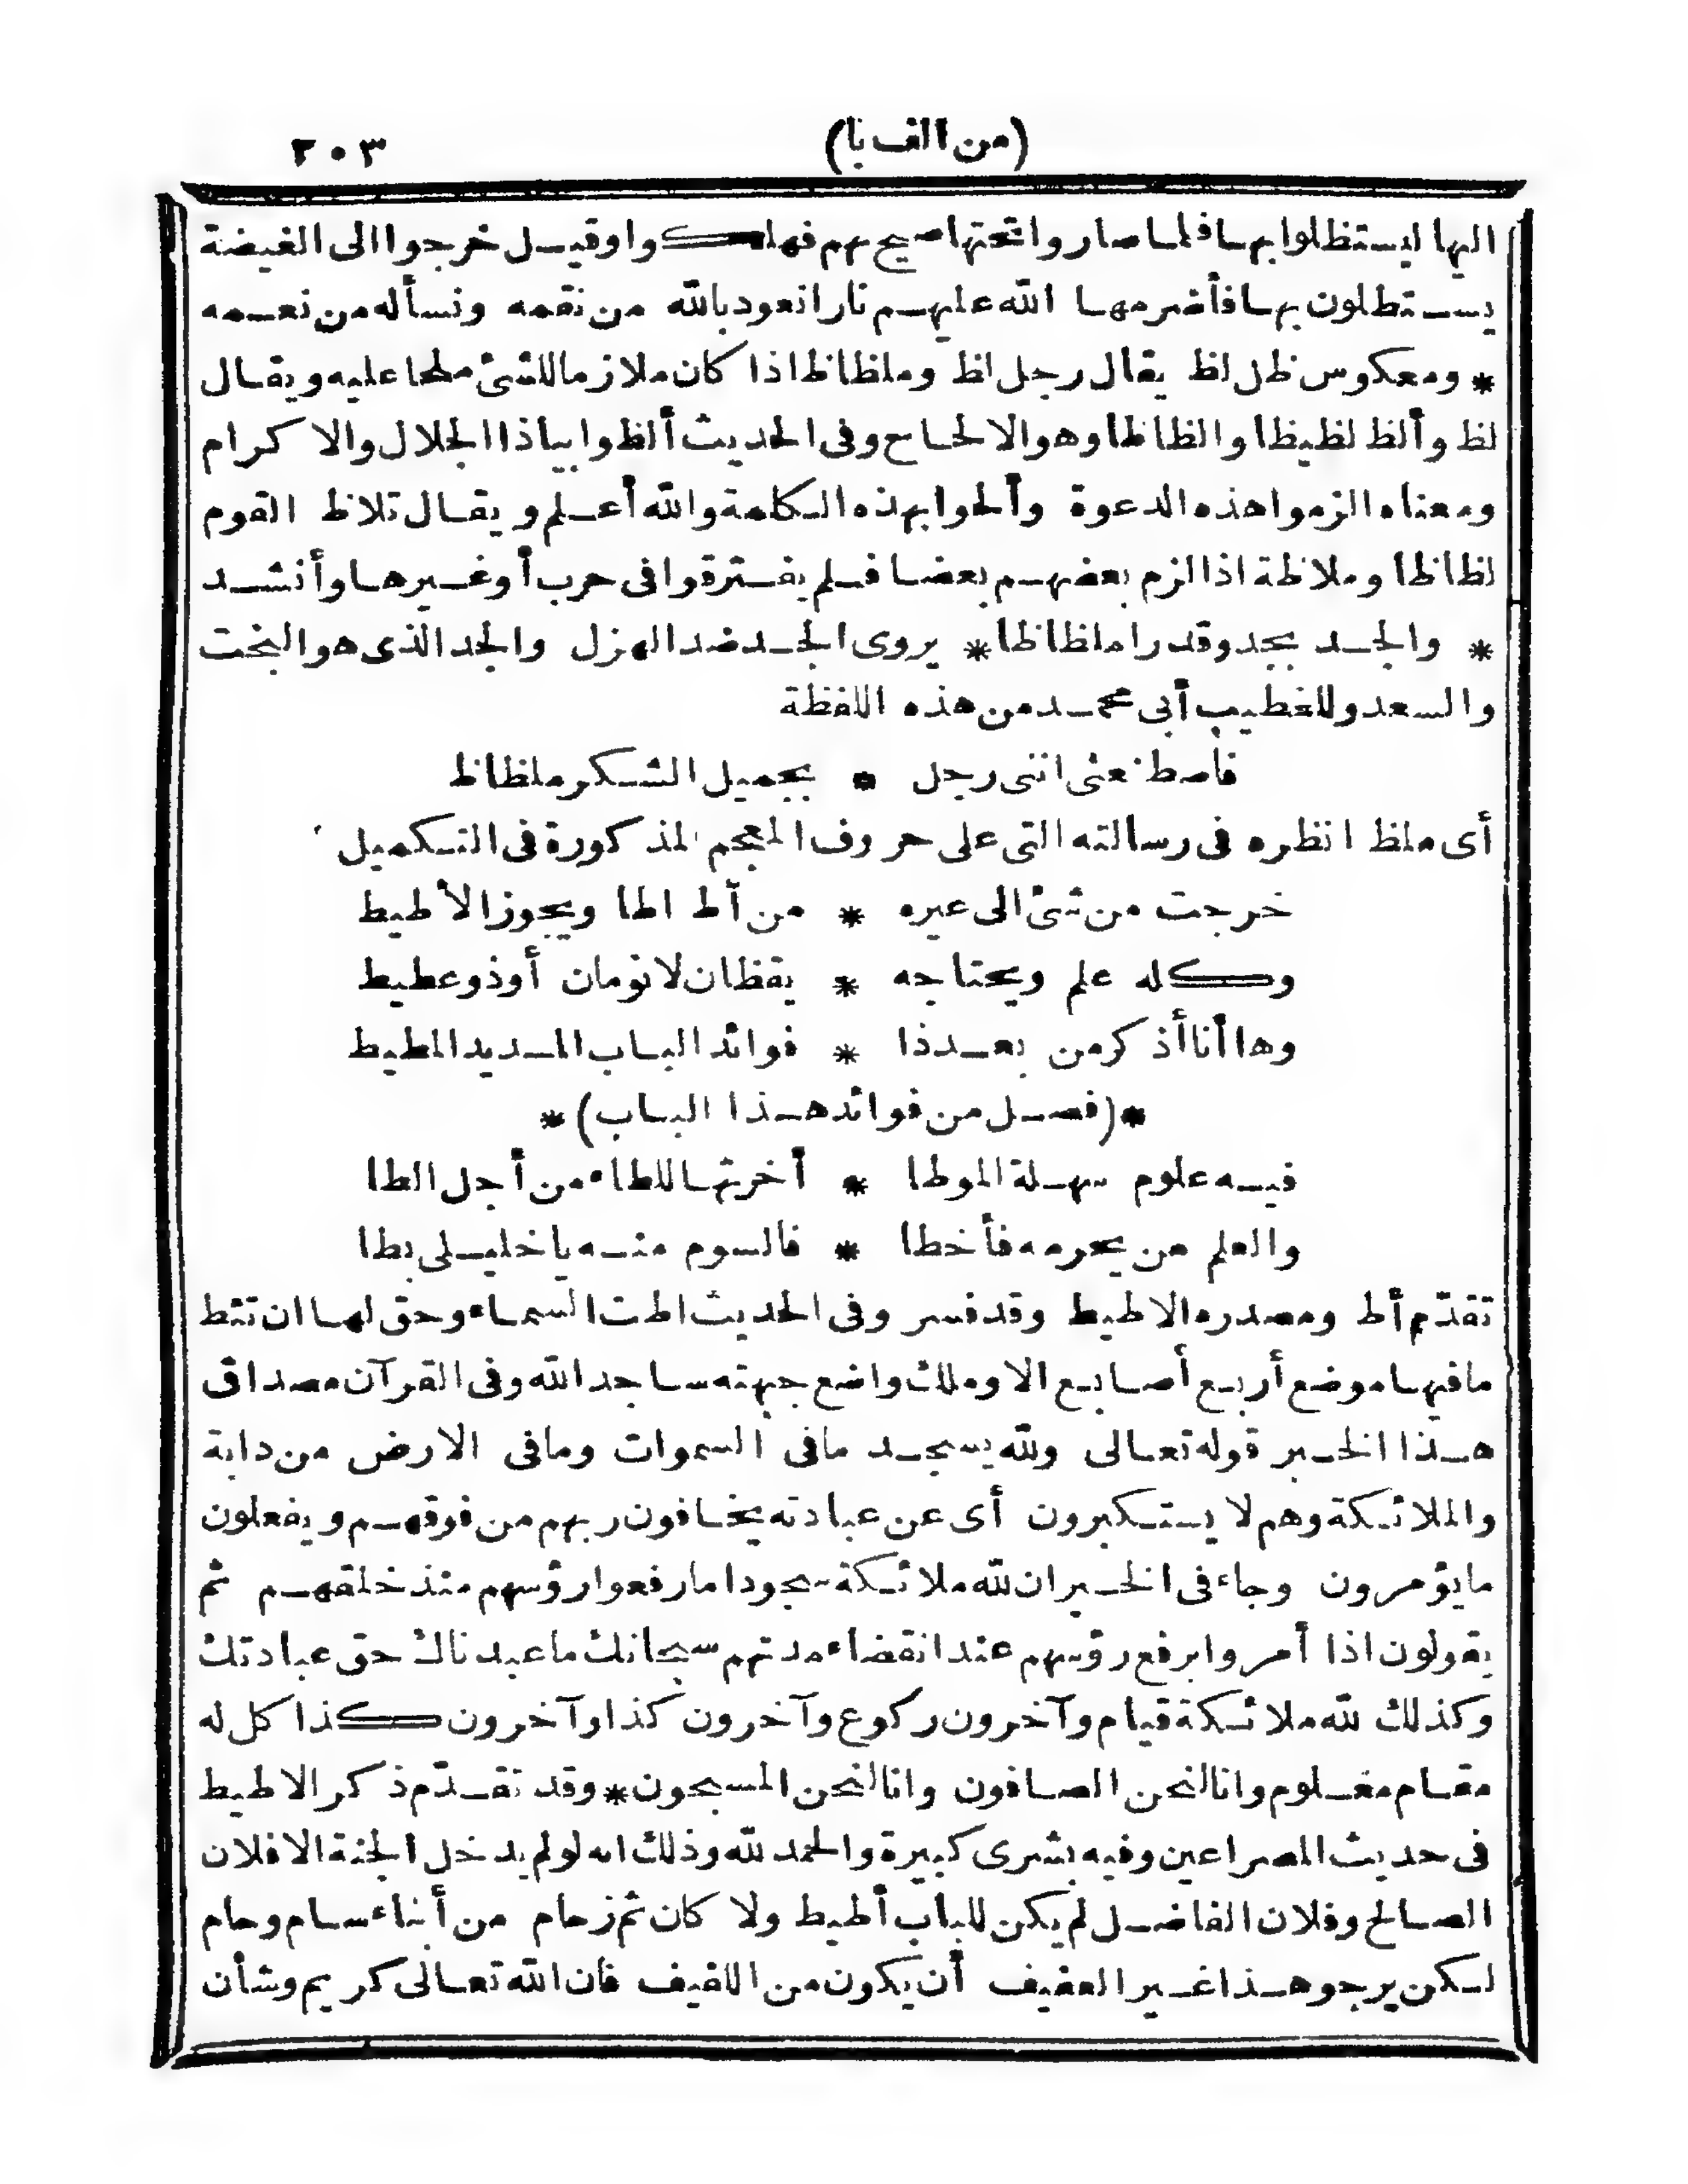 (من الف با) ٢٠٣
اليها ليستظلوا بها فلما صاروا تحتها صيح بهم فهلكوا وقيل خرجوا الى الغيضة
يستظلون بها فأضرمها الله عليهم نارا نعوذ بالله من نقمه ونسأله من نعمه
* ومعكوس ظل لظ يقال رجل لظ وملظاظ اذا كان ملازما للشئ ملحا عليه ويقال
لظ وألظ لظيظا والظاظا وهو الالحاح وفى الحديث ألظوا بياذا الجلال والاكرام
ومعناه الزموا هذه الدعوة وألحوا بهذه الكلمة والله أعلم ويقال تلاظ القوم
لظاظا وملاظة اذا لزم بعضهم بعضا فلم يفترقوا فى حرب أو غيرها وأنشد
* والجد يجد وقدرا ملظاظا * يروى الجد ضد الهزل والجد الذى هو البخت
والسعد وللخطيب أبى محمد من هذه اللفظة
فاصطنعنى اننى رجل * بجميل الشكر ملظاظ
أى ملظ انظره فى رسالته التى على حروف المعجم المذكورة فى التكميل
خرجت من شئ الى غيره * من أط اطا ويجوز الأطيط
وكله علم ويحتاجه * يقظان لا نومان أو ذو غطيط
وها أنا أذكر من بعد ذا * فوائد الباب المديد المطيط
*(فصل من فوائد هذا الباب)*
فيه علوم سهلة الموطا * أخرتها للطاء من أجل الطا
والعلم من يحرمه فأخطا * فالسوم منه يا خليلى بطا
تقدّم أط ومصدره الاطيط وقد فسر وفى الحديث اطت السماء وحق لها ان تئط
ما فيها موضع أربع أصابع الا وملك واضع جبهته ساجد الله وفى القرآن مصداق
هذا الخبر قوله تعالى ولله يسجد ما فى السموات وما فى الارض من دابة
والملائكة وهم لا يستكبرون أى عن عبادته يخافون ربهم من فوقهم ويفعلون
ما يؤمرون وجاء فى الخبر ان لله ملائكة سجودا ما رفعوا رؤسهم منذ خلقهم ثم
يقولون اذا أمروا برفع رؤسهم عند انقضاء مدتهم سبحانك ما عبدناك حق عبادتك
وكذلك لله ملائكة قيام وآخرون ركوع وآخرون كذا وآخرون كذا كل له
مقام معلوم وانا لنحن الصافون وانا لنحن المسبحون * وقد تقدّم ذكر الاطيط
فى حديث المصراعين وفيه بشرى كبيرة والحمد لله وذلك انه لو لم يدخل الجنة الا فلان
الصالح وفلان الفاضل لم يكن للباب أطيط ولا كان ثم زحام من أبناء سام وحام
لكن يرجو هذا غير العفيف أن يكون من اللفيف فان الله تعالى كريم وشأن